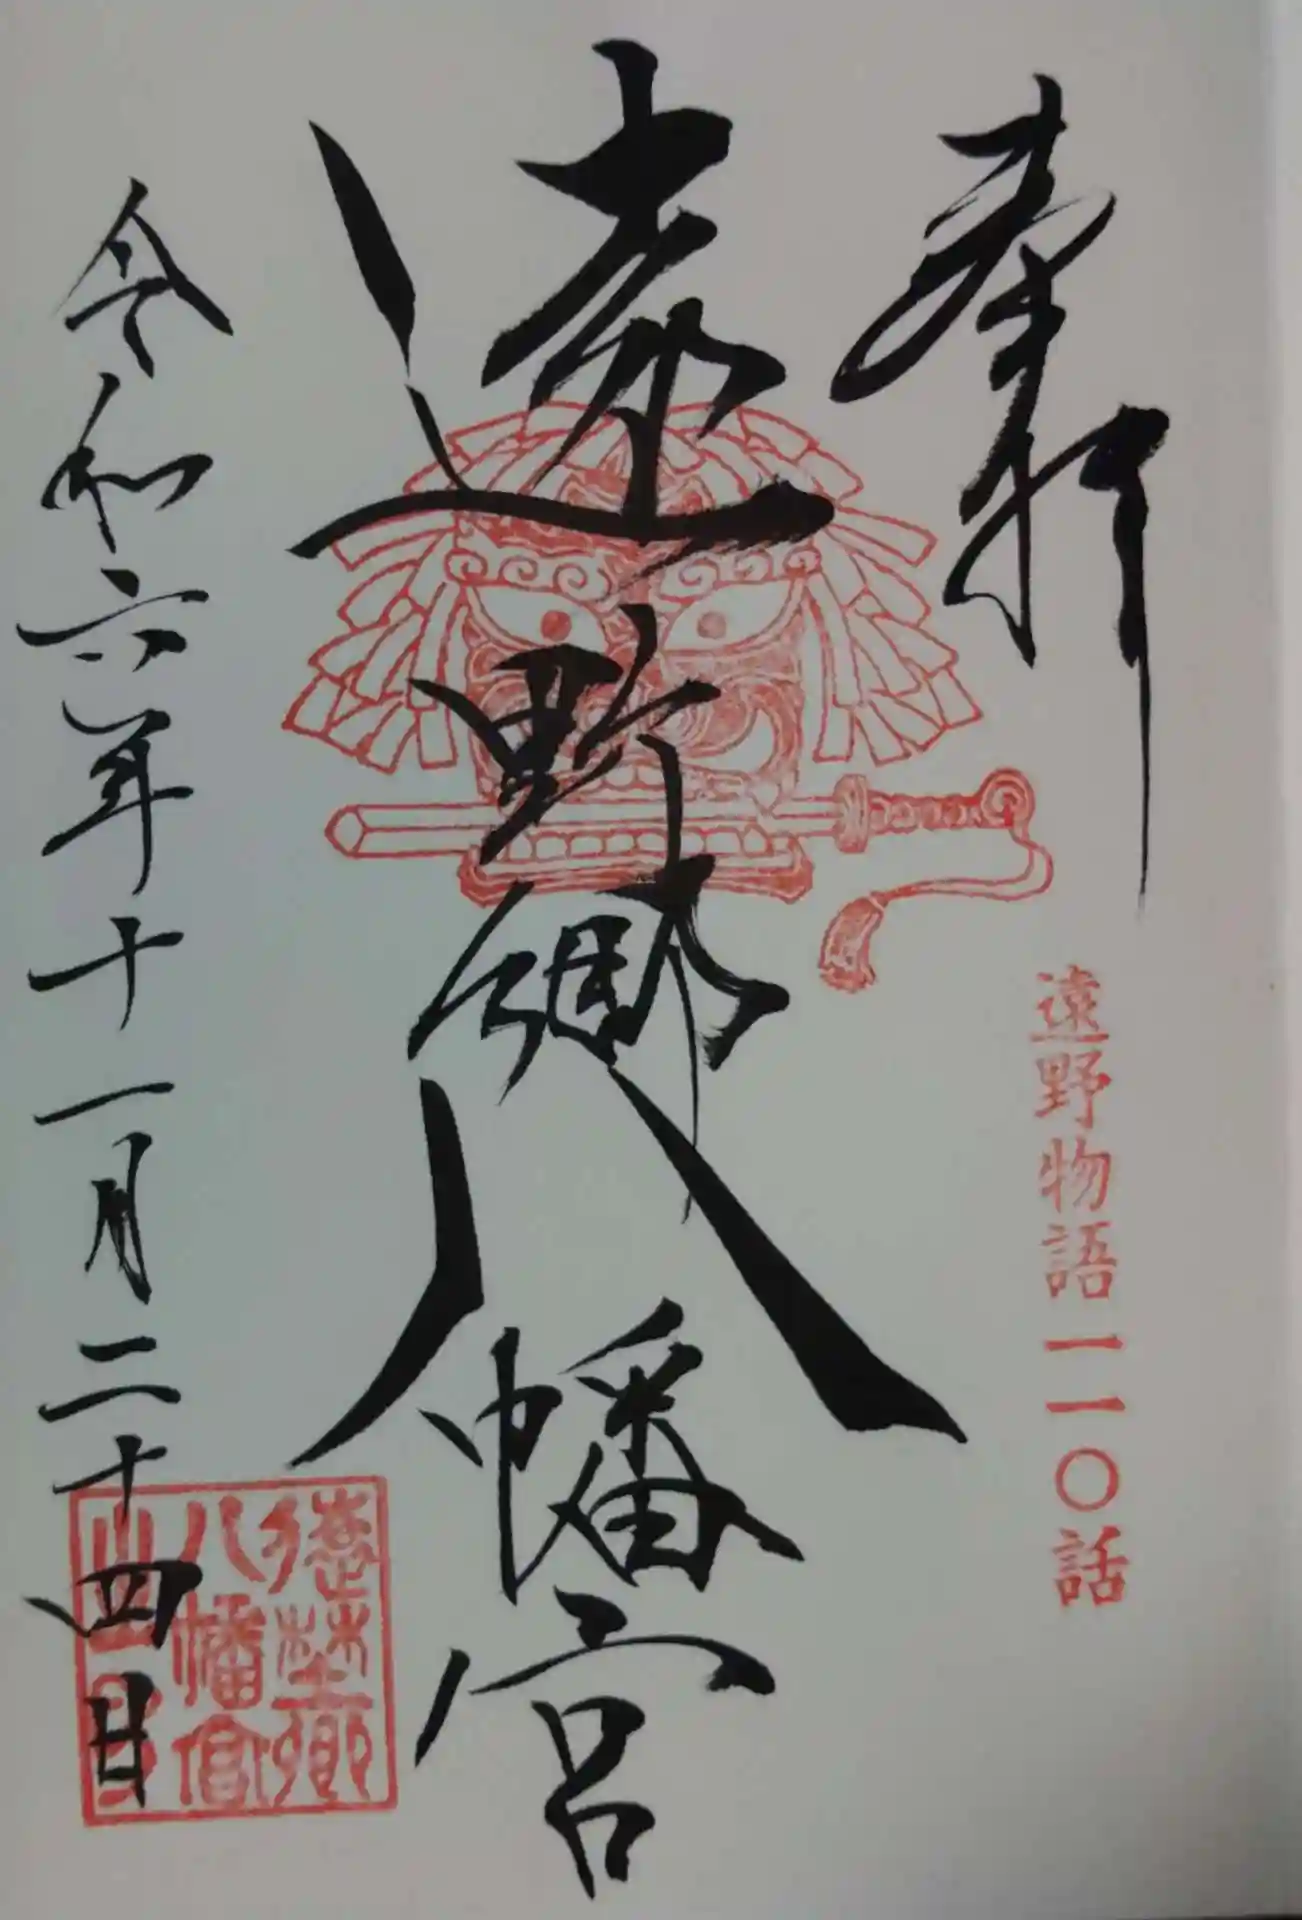 奉拝
遠野物語一一〇話
遠野郷八幡宮
遠野郷
八幡宮
之印
令和六年十一月二十四日